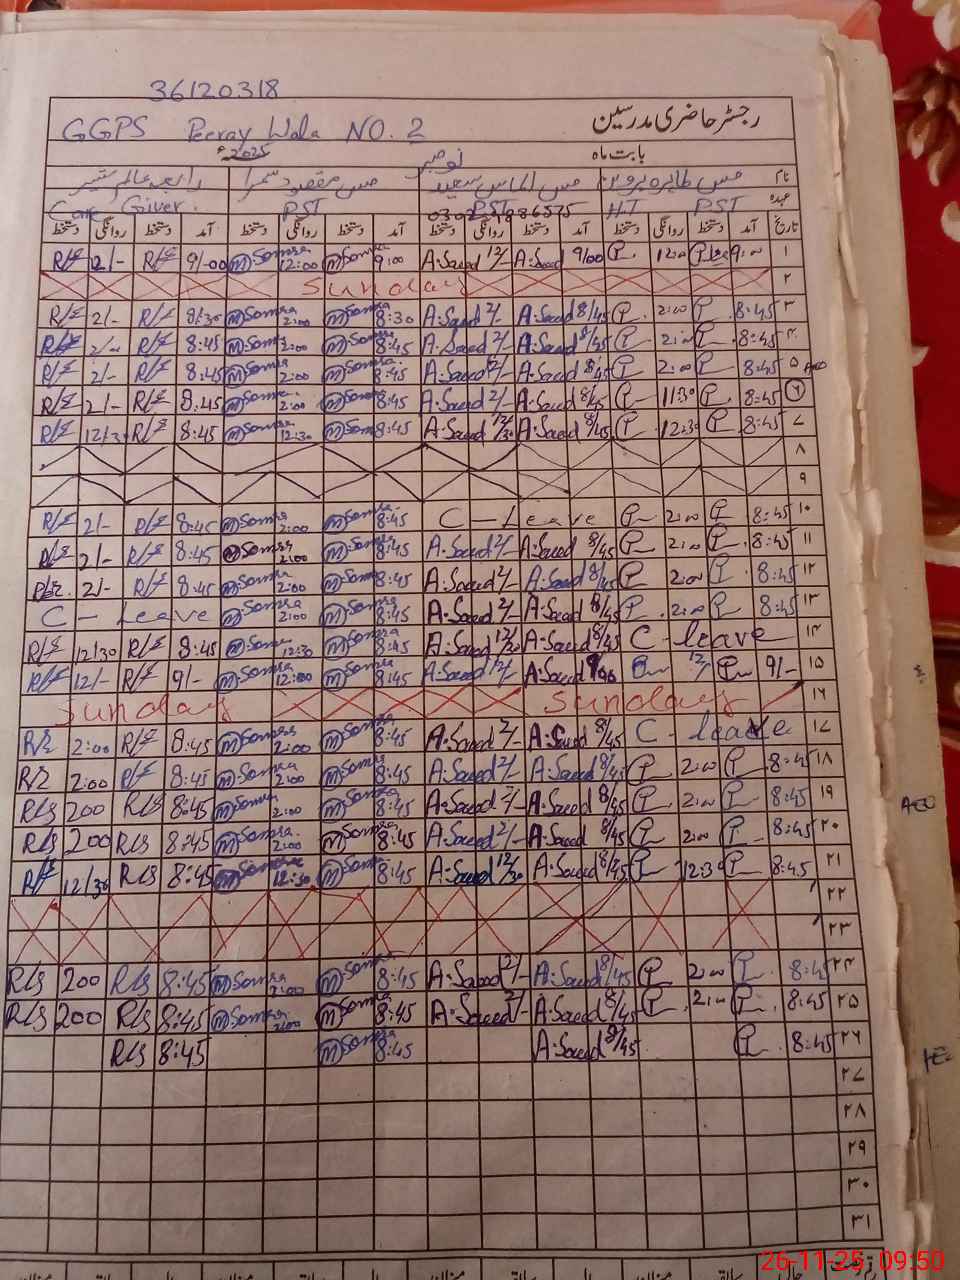 36120318
GGPS Peeray Wala NO. 2 رجسٹر حاضری مدرسین
بابت ماہ نومبر 2025ء
نام مس طاہرہ پروین مس الماس سعید مس مقصود سمرا رابعہ عالم شبیر
عہدہ H.T PST PST PST Care Giver.
تاریخ آمد دستخط روانگی دستخط آمد دستخط روانگی دستخط آمد دستخط روانگی دستخط آمد دستخط روانگی دستخط
12/- 9/-00 Somra 12:00 9:00 A.Saeed 12/- A.Saeed 9/00 12:00 9:00 ۱
Sunday ۲
2/- 8/30 Somra 2:00 Somra 8:30 A.Saeed 2/- A.Saeed 8/45 2:00 8:45 ۳
2/- 8:45 Somra 2:00 Somra 8:45 A.Saeed 2/- A.Saeed 8/45 2:00 8:45 ۴
2/- 8:45 Somra 2:00 Somra 8:45 A.Saeed 2/- A.Saeed 8/45 2:00 8:45 ۵ AEO
2/- 8:45 Somra 2:00 Somra 8:45 A.Saeed 2/- A.Saeed 8/45 11:30 8:45 ۶
12/30 8:45 Somra 12:30 Somra 8:45 A.Saeed 12/30 A.Saeed 8/45 12:30 8:45 ۷
۸
۹
2/- 8:45 Somra 2:00 Somra 8:45 C - Leave 2:00 8:45 ۱۰
2/- 8:45 Somra 2:00 Somra 8:45 A.Saeed 2/- A.Saeed 8/45 2:00 8:45 ۱۱
2/- 8:45 Somra 2:00 Somra 8:45 A.Saeed 2/- A.Saeed 8/45 2:00 8:45 ۱۲
C - Leave Somra 2:00 Somra 8:45 A.Saeed 2/- A.Saeed 8/45 2:00 8:45 ۱۳
12/30 8:45 Somra 12:30 Somra 8:45 A.Saeed 12/30 A.Saeed 8/45 C - leave ۱۴
12/- 9/- Somra 12:00 Somra 8:45 A.Saeed 12/- A.Saeed 12/- 9/- ۱۵
Sunday Sunday ۱۶
2:00 8:45 Somra 2:00 Somra 8:45 A.Saeed 2/- A.Saeed 8/45 C - leave ۱۷
2:00 8:45 Somra 2:00 Somra 8:45 A.Saeed 2/- A.Saeed 8/45 2:00 8:45 ۱۸
R/s 200 R/s 8:45 Somra 2:00 Somra 8:45 A.Saeed 2/- A.Saeed 8/45 2:00 8:45 ۱۹ AEO
R/s 200 R/s 8:45 Somra 2:00 Somra 8:45 A.Saeed 2/- A.Saeed 8/45 2:00 8:45 ۲۰
12/30 R/s 8:45 Somra 12:30 Somra 8:45 A.Saeed 12/30 A.Saeed 8/45 12:30 8:45 ۲۱
۲۲
۲۳
R/s 200 R/s 8:45 Somra 2:00 Somra 8:45 A.Saeed 2/- A.Saeed 8/45 2:00 8:45 ۲۴
R/s 200 R/s 8:45 Somra 2:00 Somra 8:45 A.Saeed 2/- A.Saeed 8/45 2:00 8:45 ۲۵
R/s 8:45 Somra 8:45 A.Saeed 8/45 8:45 ۲۶
۲۷
۲۸
۲۹
۳۰
۳۱
26-11-25, 09:50